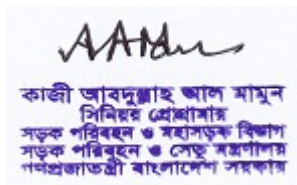 কাজী আবদুল্লাহ আল মামুন
সিনিয়র প্রোগ্রামার
সড়ক পরিবহন ও মহাসড়ক বিভাগ
সড়ক পরিবহন ও সেতু মন্ত্রণালয়
গণপ্রজাতন্ত্রী বাংলাদেশ সরকার